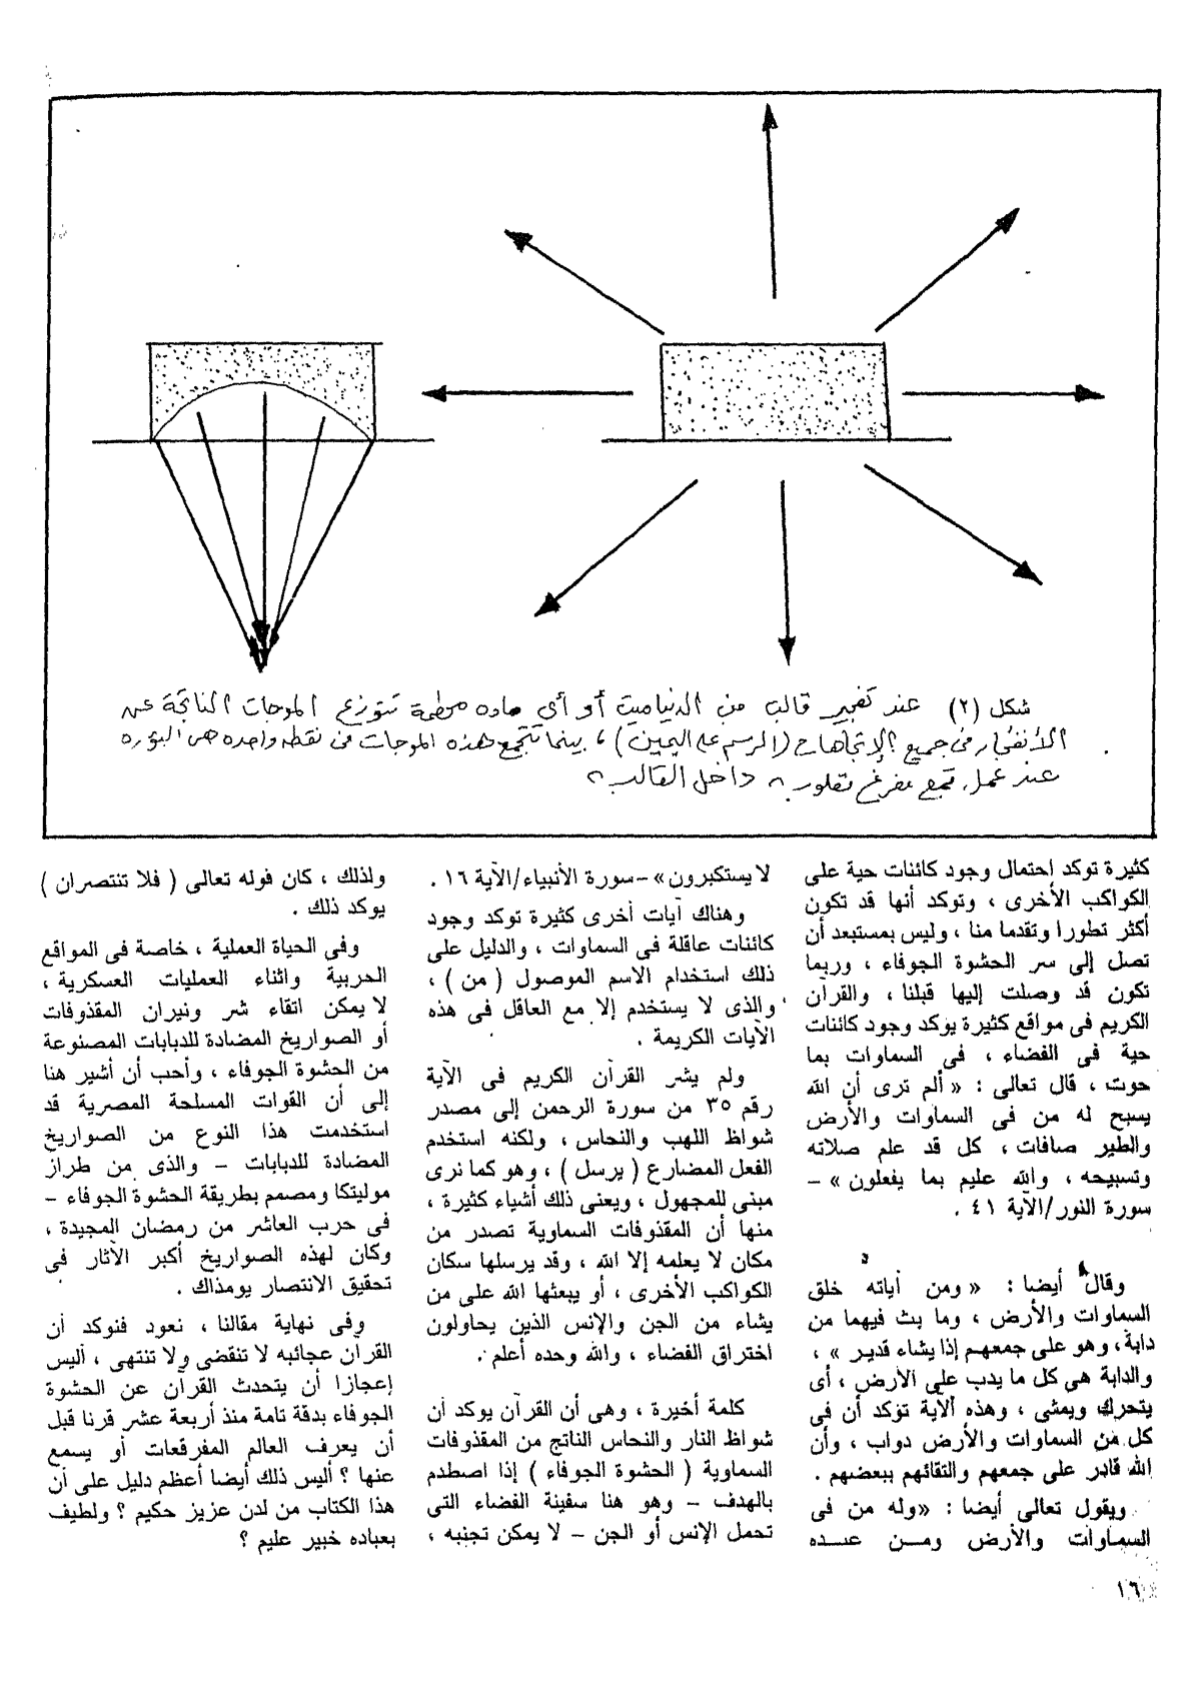 شكل (٢) عند تفجير قالب من الديناميت أو أى ماده محطمة تتوزع الموجات الناتجة عن
الأنفجار فى جميع الإتجاهات (الرسم على اليمين) ، بينما تتجمع هذه الموجات فى نقطه واحده هى البؤره
عند عمل قمع مفرغ مقلوب " داخل القالب "
كثيرة توكد احتمال وجود كائنات حية على
الكواكب الأخرى ، وتوكد أنها قد تكون
أكثر تطورا وتقدما منا ، وليس بمستبعد أن
تصل إلى سر الحشوة الجوفاء ، وربما
تكون قد وصلت إليها قبلنا ، والقرآن
الكريم فى مواقع كثيرة يوكد وجود كائنات
حية فى الفضاء ، فى السماوات بما
حوت ، قال تعالى : « ألم ترى أن الله
يسبح له من فى السماوات والأرض
والطير صافات ، كل قد علم صلاته
وتسبيحه ، والله عليم بما يفعلون » –
سورة النور/الآية ٤١ .
وقال أيضا : « ومن آياته خلق
السماوات والأرض ، وما بث فيهما من
دابة ، وهو على جمعهم إذا يشاء قدير » ،
والدابة هى كل ما يدب على الأرض ، أى
يتحرك ويمشى ، وهذه ألآية توكد أن فى
كل من السماوات والأرض دواب ، وأن
الله قادر على جمعهم والتقائهم ببعضهم .
ويقول تعالى أيضا : «وله من فى
السماوات والأرض ومـــن عنـــده
لا يستكبرون» –سورة الأنبياء/الآية ١٦ .
وهناك آيات أخرى كثيرة توكد وجود
كائنات عاقلة فى السماوات ، والدليل على
ذلك استخدام الاسم الموصول ( من ) ،
والذى لا يستخدم إلا مع العاقل فى هذه
الآيات الكريمة .
ولم يشر القرآن الكريم فى الآية
رقم ٣٥ من سورة الرحمن إلى مصدر
شواظ اللهب والنحاس ، ولكنه استخدم
الفعل المضارع ( يرسل ) ، وهو كما نرى
مبنى للمجهول ، ويعنى ذلك أشياء كثيرة ،
منها أن المقذوفات السماوية تصدر من
مكان لا يعلمه إلا الله ، وقد يرسلها سكان
الكواكب الأخرى ، أو يبعثها الله على من
يشاء من الجن والإنس الذين يحاولون
اختراق الفضاء ، والله وحده أعلم .
كلمة أخيرة ، وهى أن القرآن يوكد أن
شواظ النار والنحاس الناتج من المقذوفات
السماوية ( الحشوة الجوفاء ) إذا اصطدم
بالهدف – وهو هنا سفينة الفضاء التى
تحمل الإنس أو الجن – لا يمكن تجنبه ،
ولذلك ، كان فوله تعالى ( فلا تنتصران )
يوكد ذلك .
وفى الحياة العملية ، خاصة فى المواقع
الحربية واثناء العمليات العسكرية ،
لا يمكن اتقاء شر ونيران المقذوفات
أو الصواريخ المضادة للدبابات المصنوعة
من الحشوة الجوفاء ، وأحب أن أشير هنا
إلى أن القوات المسلحة المصرية قد
استخدمت هذا النوع من الصواريخ
المضادة للدبابات – والذى من طراز
موليتكا ومصمم بطريقة الحشوة الجوفاء –
فى حرب العاشر من رمضان المجيدة ،
وكان لهذه الصواريخ أكبر الآثار فى
تحقيق الانتصار يومذاك .
وفى نهاية مقالنا ، نعود فنوكد أن
القرآن عجائبه لا تنقضى ولا تنتهى ، أليس
إعجازا أن يتحدث القرآن عن الحشوة
الجوفاء بدقة تامة منذ أربعة عشر قرنا قبل
أن يعرف العالم المفرقعات أو يسمع
عنها ؟ أليس ذلك أيضا أعظم دليل على أن
هذا الكتاب من لدن عزيز حكيم ؟ ولطيف
بعباده خبير عليم ؟
١٦